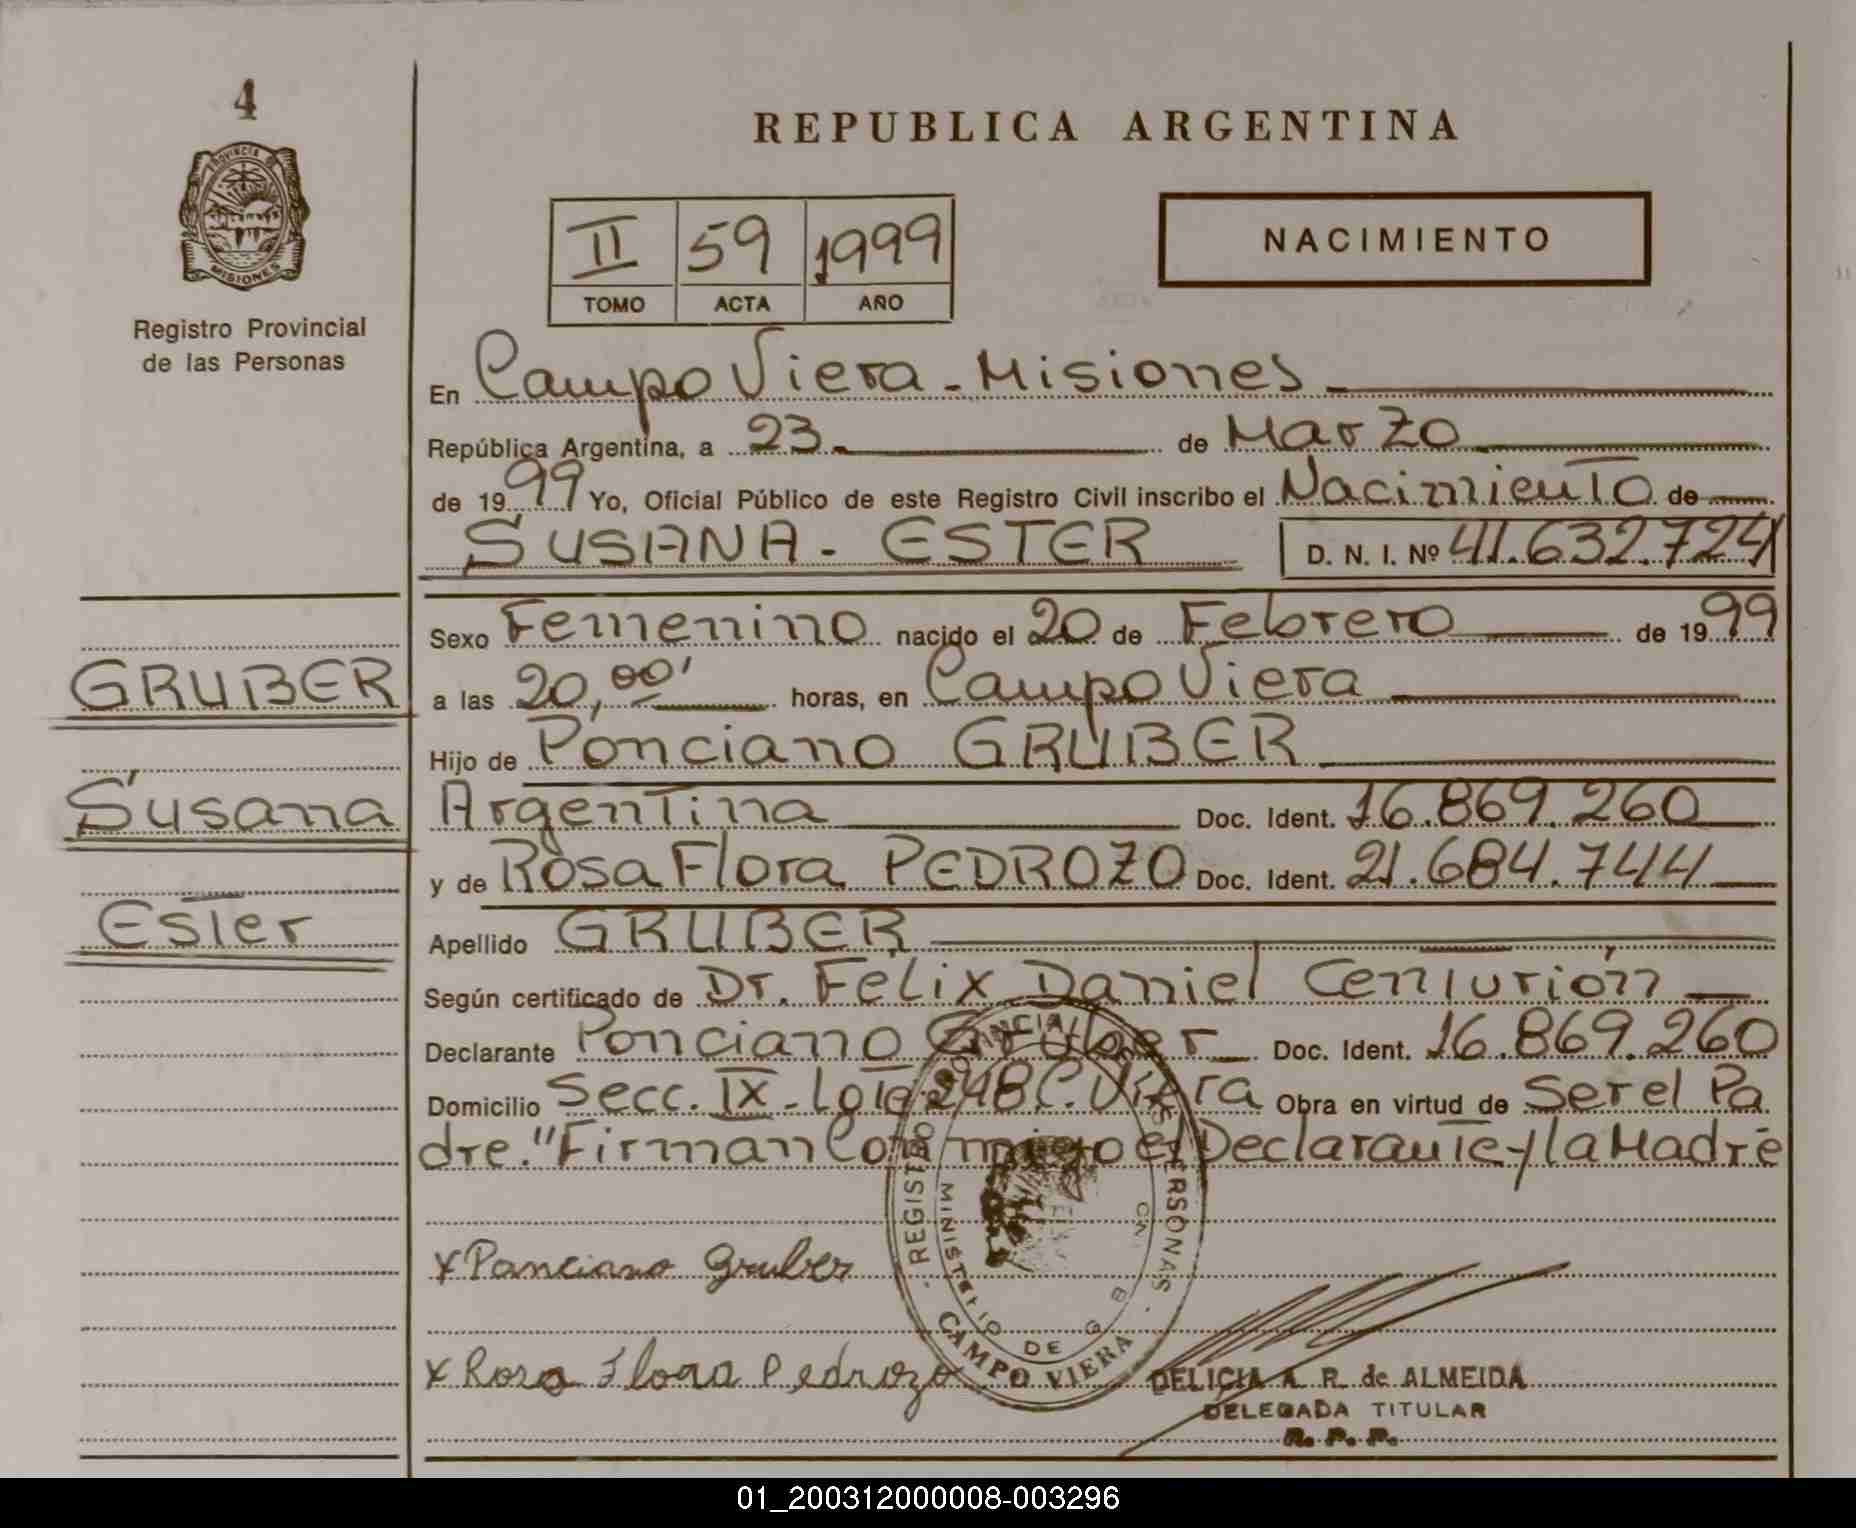 4
PROVINCIA DE
MISIONES
Registro Provincial
de las Personas
REPUBLICA ARGENTINA
II 59 1999
TOMO ACTA AÑO
NACIMIENTO
En Campo Viera - Misiones
República Argentina, a 23 de Marzo
de 1999 Yo, Oficial Público de este Registro Civil inscribo el Nacimiento de
SUSANA - ESTER D. N. I. Nº 41.632.724
Sexo Femenino nacido el 20 de Febrero de 1999
GRUBER
a las 20,00' horas, en Campo Viera
Hijo de Ponciano GRUBER
Susana
Argentina Doc. Ident. 16.869.260
y de Rosa Flora PEDROZO Doc. Ident. 21.684.744
Ester
Apellido GRUBER
Según certificado de Dr. Felix Daniel Centurión
Declarante Ponciano Gruber Doc. Ident. 16.869.260
Domicilio Secc. IX - Lote 248 C. Viera Obra en virtud de Ser el Pa
dre. "Firman Conmigo el Declarante y la Madre
x Ponciano Gruber
x Rosa Flora Pedrozo
REGISTRO PROVINCIAL DE LAS PERSONAS
MINISTERIO DE
CAMPO VIERA
DELICIA A. R. de ALMEIDA
DELEGADA TITULAR
R. P. P.
01_200312000008-003296